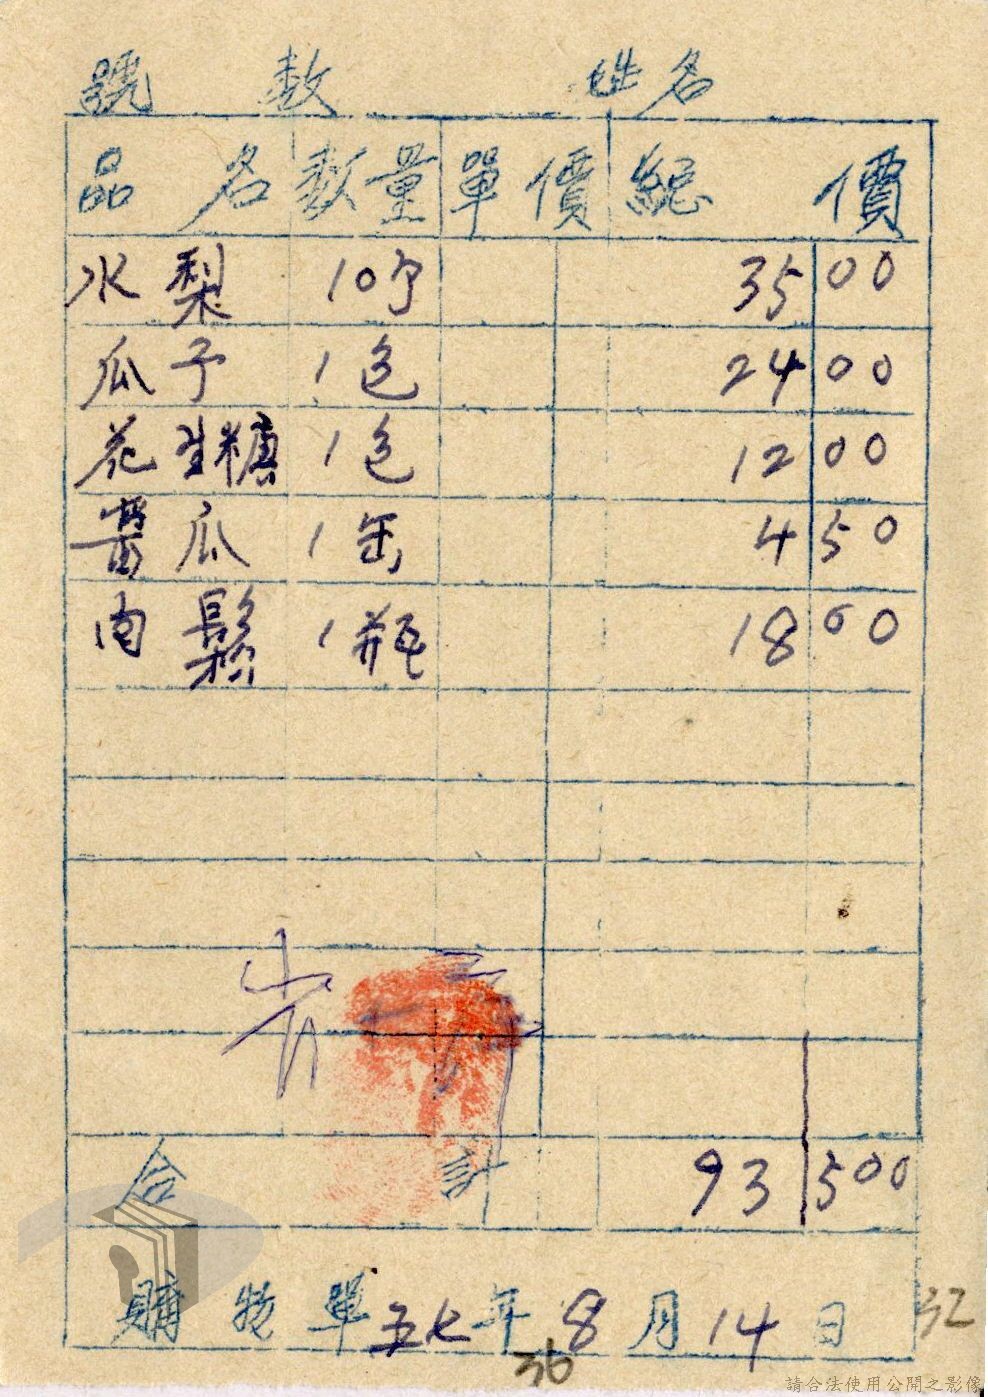 號數 姓名
品名 數量 單價 總價
水梨 10个 35 00
瓜子 1包 24 00
花生糖 1包 12 00
醬瓜 1缶 4 50
肉鬆 1瓶 18 00
合計 93 500
購物單 五七年8月14日
32
36
請合法使用公開之影像